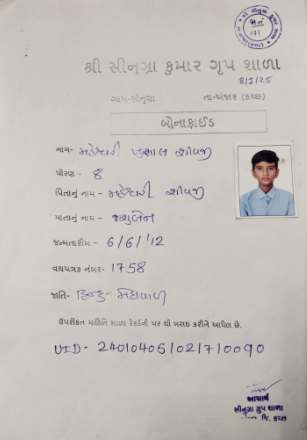 શ્રી સીનુગ્રા કુમાર ગૃપ શાળા
8/5/25
ગામ-સીનુગ્રા તા-અંજાર (કચ્છ)
બોનાફાઈડ
નામ- મહેશ્વરી શીવજી
ધોરણ - 8
પિતાનું નામ - મહેશ્વરી શીવજી
માતાનું નામ -
જન્મતારીખ - 6/6/'12
વયપત્રક નંબર- 1758
જાતિ- હિન્દુ-
ઉપરોક્ત માહિતિ શાળા રેકર્ડની પર થી ખરાઇ કરીને આપેલ છે.
UID - 24010405102710090
આચાર્ય
સીનુગ્રા ગૃપ શાળા
જિ. કચ્છ